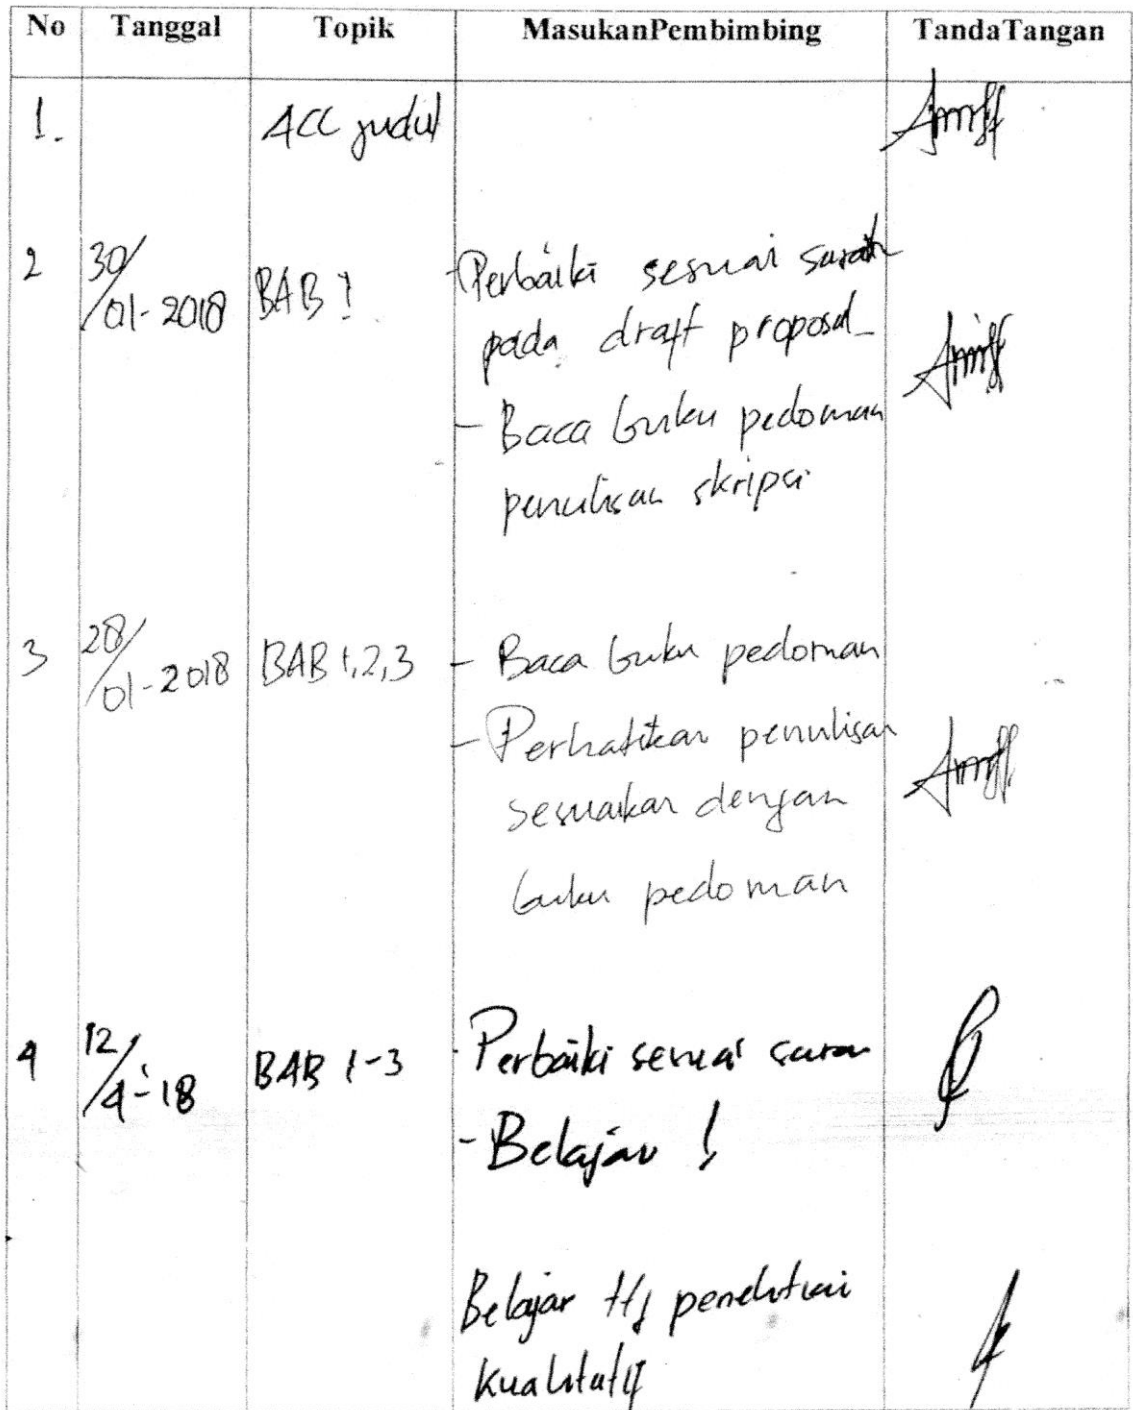 No Tanggal Topik MasukanPembimbing TandaTangan
1. ACC judul
2 30/01-2018 BAB 1 - Perbaiki sesuai saran
pada draft proposal
- Baca buku pedoman
penulisan skripsi
3 28/01-2018 BAB 1,2,3 - Baca buku pedoman
- Perhatikan penulisan
sesuaikan dengan
buku pedoman
4 12/4-18 BAB 1-3 - Perbaiki sesuai saran
- Belajar !
Belajar ttg penelitian
kualitatif